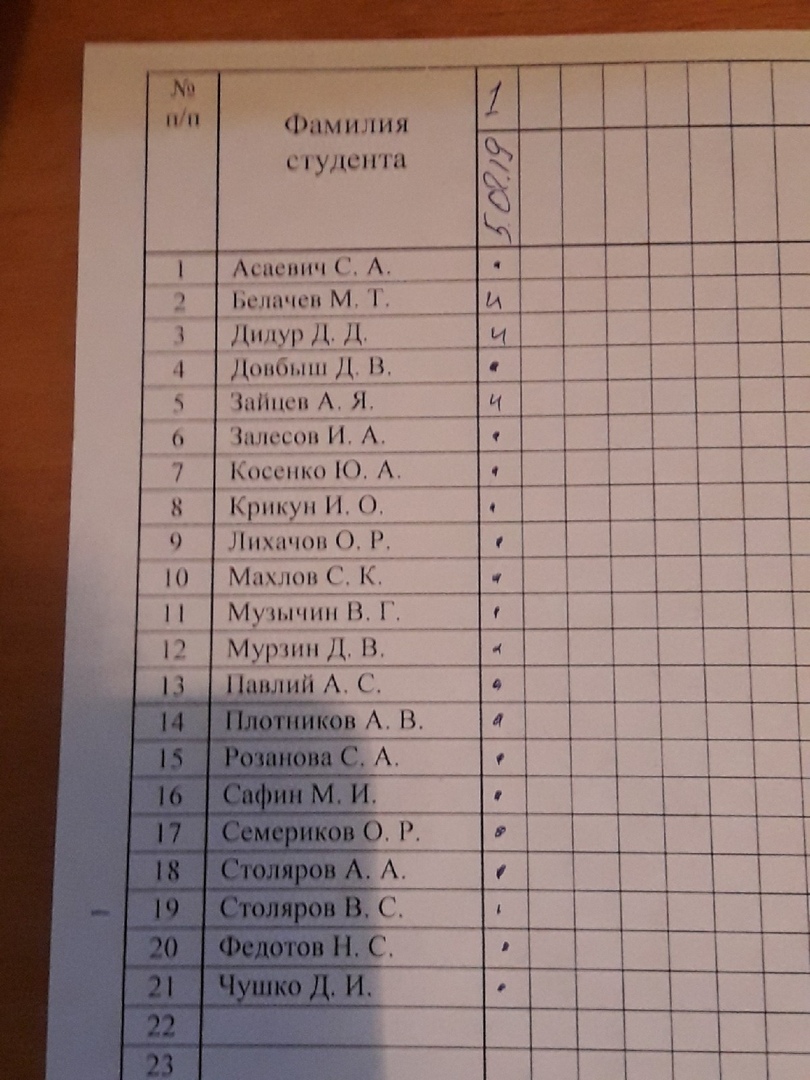 № п/п Фамилия студента 1
5.02.19
1 Асаевич С. А. •
2 Белачев М. Т. Ч
3 Дидур Д. Д. Ч
4 Довбыш Д. В. •
5 Зайцев А. Я. Ч
6 Залесов И. А. •
7 Косенко Ю. А. •
8 Крикун И. О. •
9 Лихачов О. Р. •
10 Махлов С. К. •
11 Музычин В. Г. •
12 Мурзин Д. В. •
13 Павлий А. С. •
14 Плотников А. В. •
15 Розанова С. А. •
16 Сафин М. И. •
17 Семериков О. Р. •
18 Столяров А. А. •
19 Столяров В. С. •
20 Федотов Н. С. •
21 Чушко Д. И. •
22
23